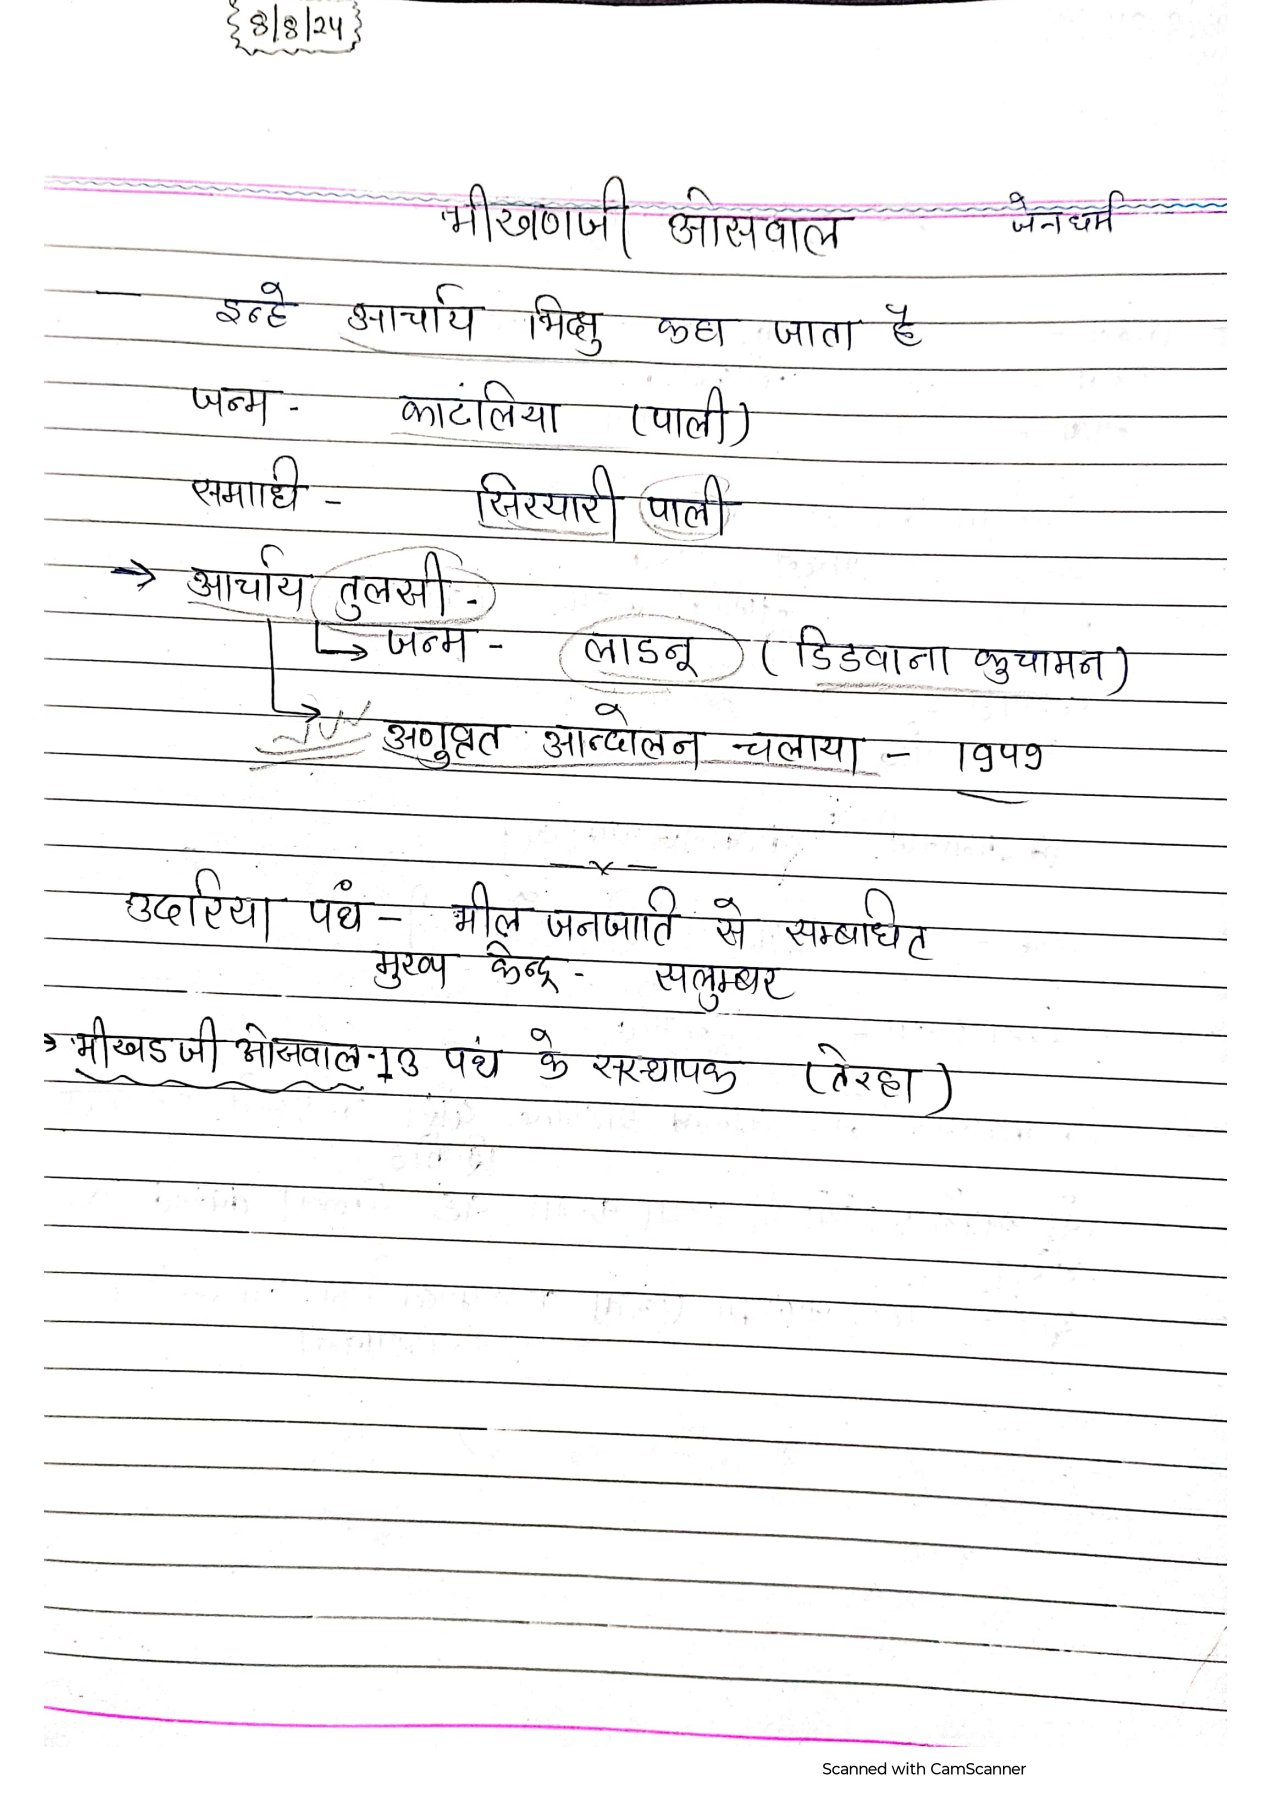 8/8/24
भीखणजी ओसवाल जेनधर्म
इन्हे आर्चाय भिक्षु कहा जाता है
जन्म - काटंलिया (पाली)
समाधि - सिरयारी पाली
→ आर्चाय तुलसी -
जन्म - लाडनू (डिडवाना कुचामन)
अणुव्रत आन्दोलन चलाया - 1949
—x—
उदरिया पंथ - भील जनजाति से सम्बधित
मुख्य केन्द्र - सलुम्बर
→ भीखडजी ओसवाल-13 पंथ के सस्थापक (तेरहा)
Scanned with CamScanner